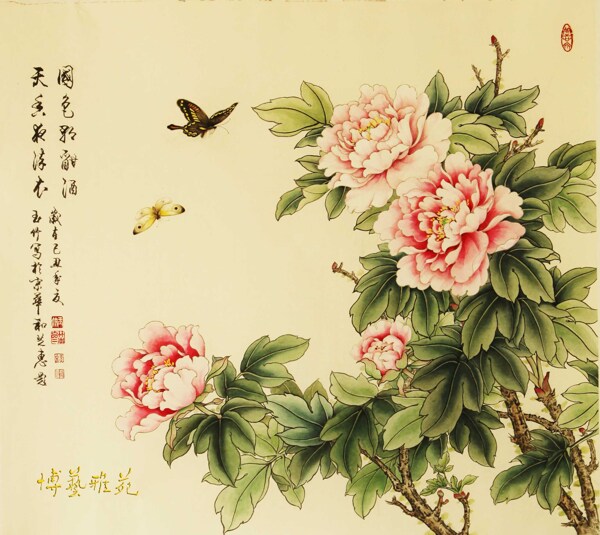 國色朝酣酒
天香夜染衣
歲在己丑年夏
玉竹寫於京華
博藝雅苑